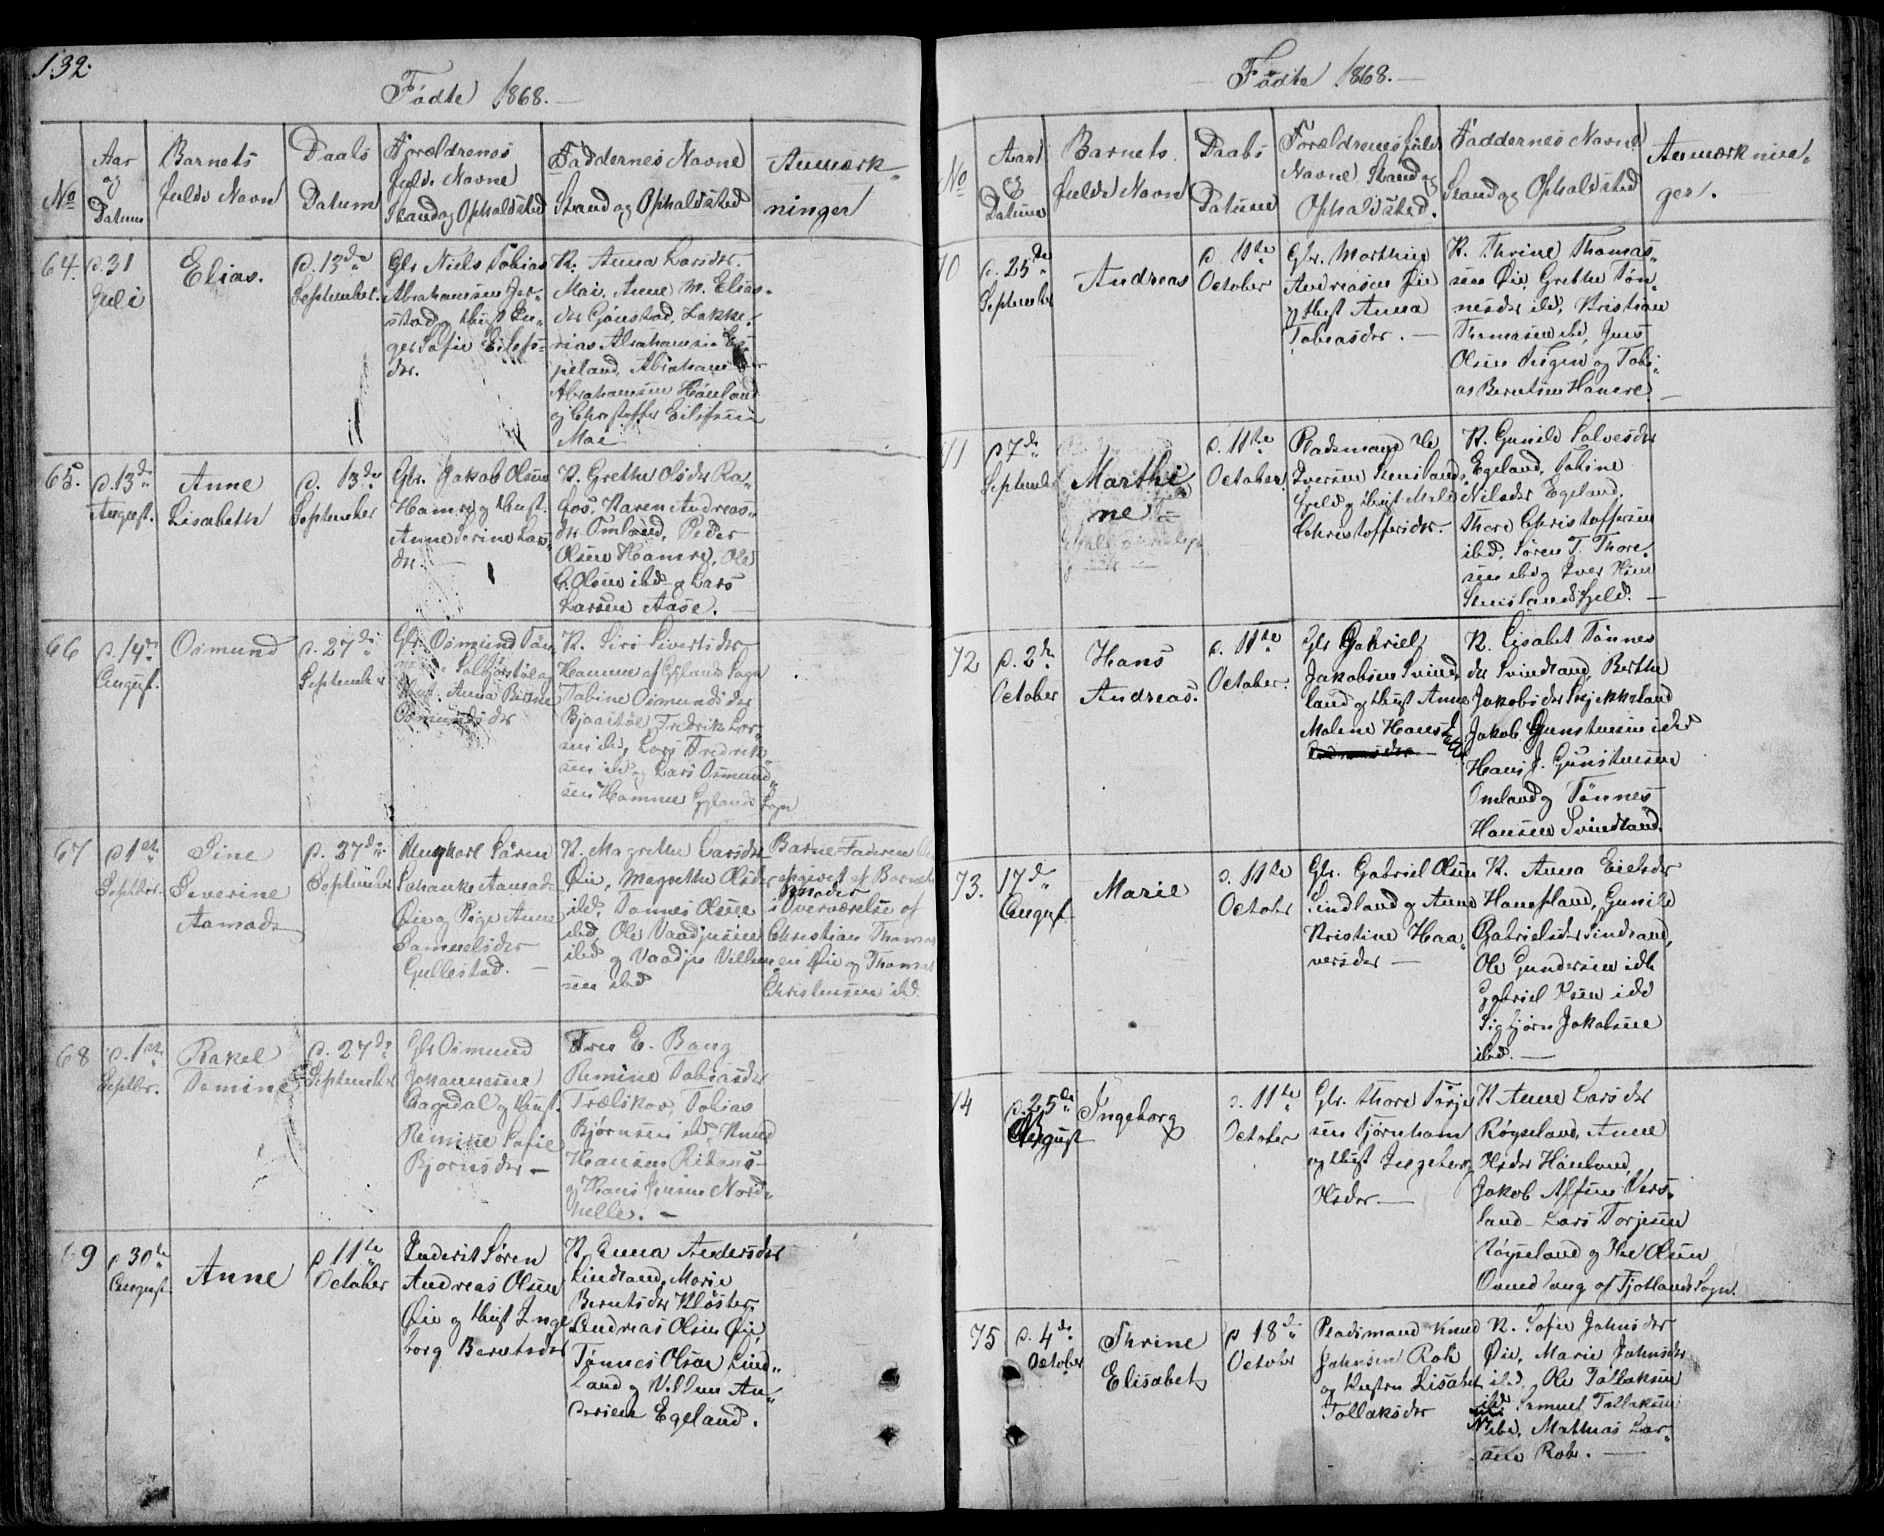 132.
Födte 1868.
No
Aar
og
Datum
Barnets
fulde Navn
Daabs
Datum
Forældrenes
fulde Navne
Stand og Opholdsted
Faddernes Navne
Stand og Opholdsted
Anmærk-
ninger
64.
d. 31
Juli
Elias.
d. 13de
September.
Gbr Niels Tobias
Abrahamsen
og Hust. In-
ger Sofie Eilefs-
dr.
K. Anna Larsdr.
Moi. Anne M. Elias-
dr Gönstad, Zakka-
rias Abrahamsen Es-
peland, Abraham
Abrahamsen Hönland
og Christoffer Eilefsen
Moi
65.
d. 13de
August.
Anne
Lisabeth
d. 13de
September
Gbr. Jakob Olsen
Hamre og Hust.
Anne Serine Lars-
dr.
K. Grethe Olsdr Ra-
fos, Karen Andreas-
dr Omland, Peder
Olsen Hamre, Ole
C. Olsen ibd og Lars
Larsen Aase.
66
d. 14de
August.
Osmund
d. 27de
September
Gbr. Osmund Tön-
Hust. Anna
Osmundsdr
K. Siri Sivertsdr
Hamme af Gylands Sogn
Tobine Osmundsdr
Fredrik Lar-
sen ibd, Lars Fredrik-
sen ibd og Lars Osmund-
sen Hamme Gylands Sogn
67
d 1ste
Septbr.
Sine
Severine
Aamodt
d. 27de
September
Ungkarl Sören
Schanke Aamodt
Öie og Pige Anne
Samuelsdr
Gullestad.
K. Magrethe Larsdr
Öie, Magrethe Olsdr
ibd, Tönnes Olsen
ibd, Ole Vaadjesen
ibd og Vaadje Villum-
sen ibd
Barne-Faderen
opgivet af Barnets
Moder
i Overværelse af
Christian Thomas-
en Öie og Thomas
Christensen ibd.
68
d. 1ste
Septbr.
Rakel
Tomine
d. 27de
September
Gbr Osmund
Johannesen
Bagedal og Hust.
Remine Sofie
Bjornsdr
Fru E. Bang
Remine Tobiasdr
Trælskov, Tobias
Bjørnsen ibd, Knud
Hansen
og Hans Jensen Nord-
helle.
69
d 30te
August
Anne
d 11te
October
Inderst Søren
Andreas Olsen
Öie og Hust Inge
borg Berntsdr
K. Anna Andersdr
Lindland, Marie
Berntsdr Kloster
Andreas Olsen Öie,
Tönnes Olsen Lind-
land og Villum An-
dersen Egeland.
Födte 1868.
No
Aar
og
Datum
Barnets
fulde Navn
Daabs
Datum
Forældrenes fulde
Navne Stand og
Opholdsted.
Faddernes Navne
Stand og Opholdsted
Anmærknin-
ger.
70
d. 25de
September
Andreas
d. 11te
October
Gbr. Morthine
Andreasen Öie
og Hust Anna
Tobiasdr.
K. Thrine Thomas-
sen Öie, Grethe Tön-
nesdr ibd, Kristian
Thomasen ibd, Jens
Olsen og Tobi-
as Berntsen Hamre
71
d 7de
September
Marthi
ne
d. 11te
October
Pladsmand Ole
Iversen Stensland-
fjeld og Hust Male
Christoffersdr.
K. Gunild Salvesdr
Egeland, Tobine
Nilsdr Egeland,
Thore Christoffersen
ibd, Søren T. Thore-
sen ibd og Iver Olsen
Stenslandsfjeld.
72
d. 2den
October
Hans
Andreas.
d. 11te
October.
Gbr Gabriel
Jakobsen Svind-
land og Hust Anne
Malene Hans
K. Lisabet Tönnes
dr Svindland, Berthe
Jakobsdr
Jakob Gunstensen ibd
Hans J. Gunstensen
Omland og Tönnes
Hansen Svindland.
73.
17de
August
Marie
d. 11te
October
Gbr. Gabriel Olsen
Sindland og Anne
Kristine Haa-
versdr
K. Anna Eielsdr
Haugland, Gunild
Gabrielsdr Sindland,
Ole Gundersen ibd
Gabriel Olsen ibd
Sigbjørn Jakobsen
ibd.
74
d. 25de
August
Ingeborg
d. 11te
October
Gbr. Thore Torje
sen Bjørnham
og Hust Ingeborg
Olsdr
K Anne Larsdr
Röyseland, Anne
Olsdr Hönland,
Jakob
land Lars Torjesen
Röyseland og Ole Olsen
af Fjotlands Sogn.
75
d. 4de
October
Thrine
Elisabet
d 18de
October
Pladsmand Knud
Johnsen Rob
og Hustru Lisabet
Tollaksdr
K. Sofie Johnsdr
Öie, Marie Johnsdr
ibd Ole Tollaksen
ibd Samuel Tollaksen
ibd, Mathias Lar-
sen Rob.